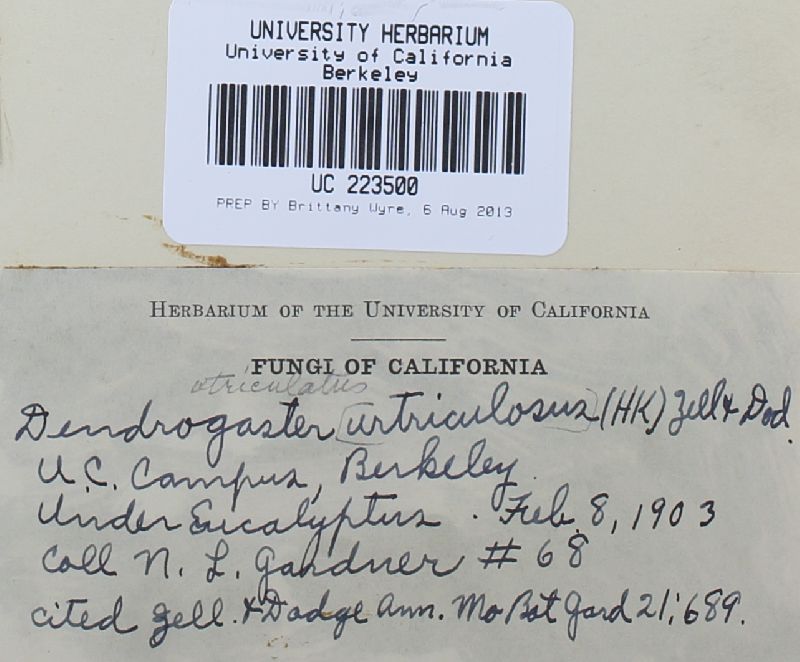 UNIVERSITY HERBARIUM
University of California
Berkeley
UC 223500
PREP BY Brittany Wyre, 6 Aug 2013
HERBARIUM OF THE UNIVERSITY OF CALIFORNIA
FUNGI OF CALIFORNIA
utriculatus
Dendrogaster [urtriculosus] (HK) Zell & Dod.
U.C. Campus, Berkeley.
Under Eucalyptus. Feb. 8, 1903
Coll N. L. Gardner # 68
cited Zell. & Dodge Ann. Mo Bot Gard 21:689.